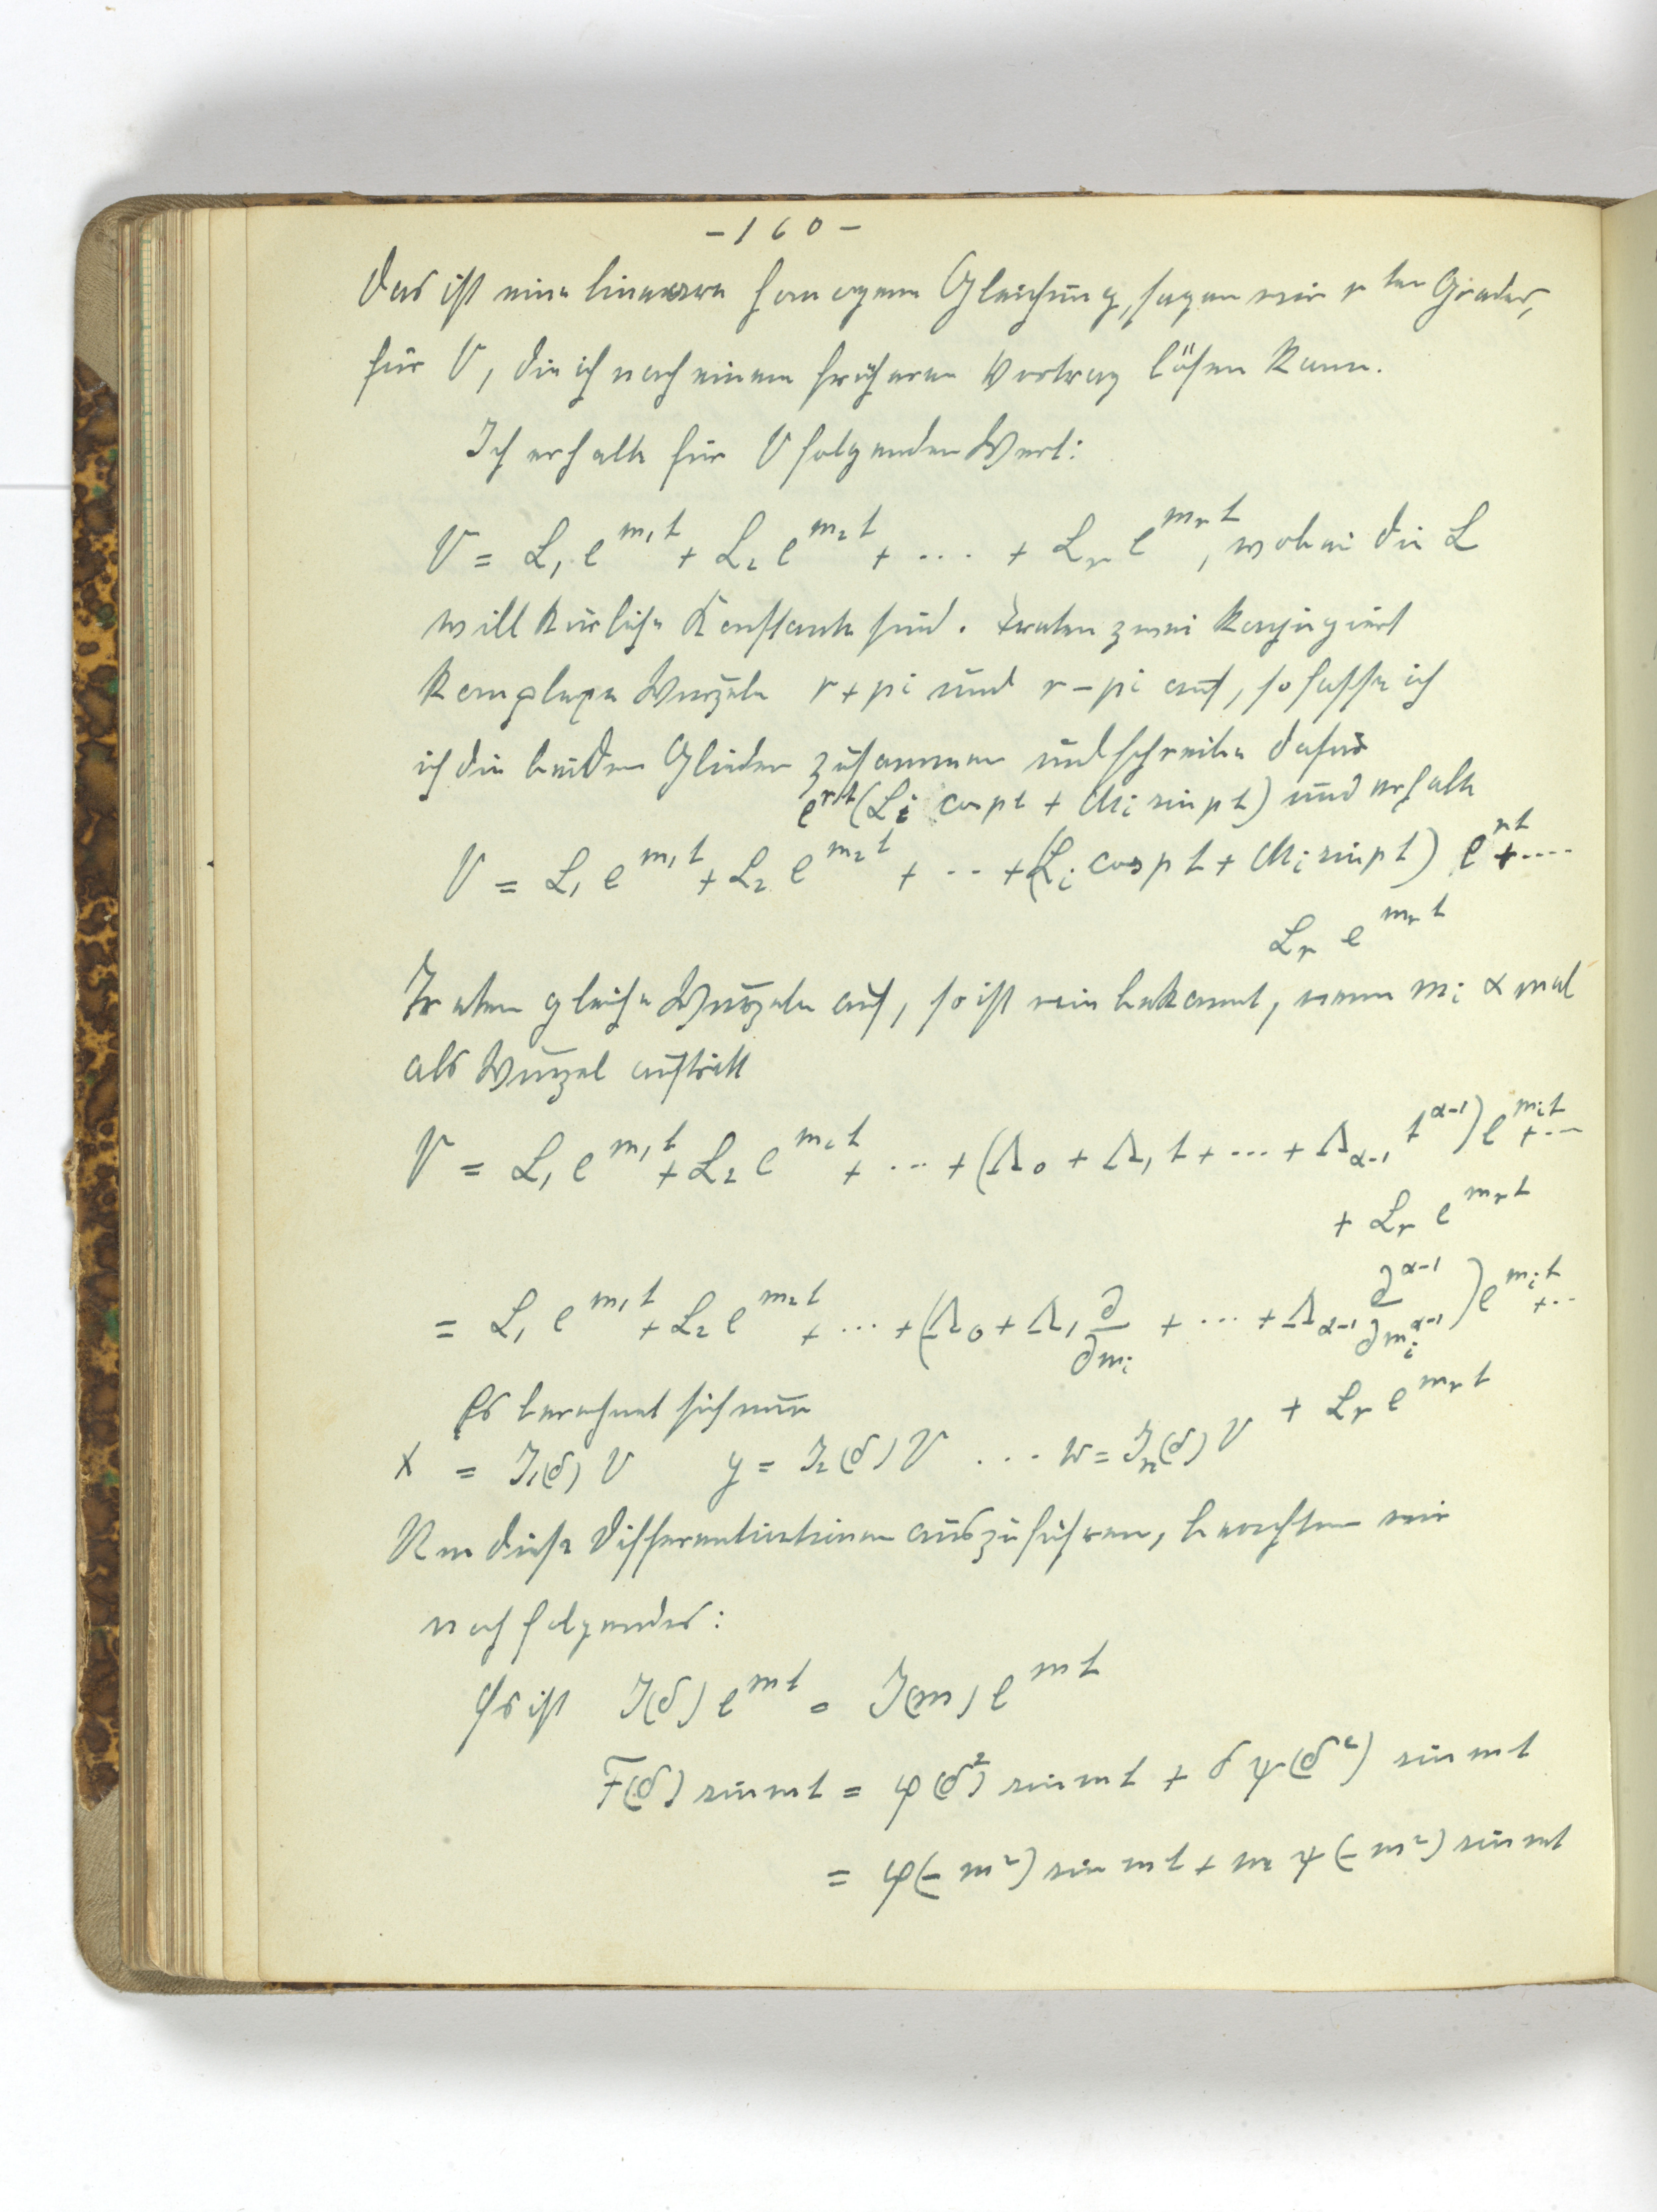 - 160 -
Das ist eine lineare homogene Gleichung, sagen wir r ten Grades,
für V, die ich nach einem früheren Vortrag lösen kann.
Ich erhalte für V folgenden Wert:
V = L₁ e^{m₁t} + L₂ e^{m₂t} + ... + L_r e^{m_r t}, wobei die L
willkürliche Konstante sind. Treten zwei konjugiert
komplexe Wurzeln r + pi und r - pi auf, so fasse ich
ich die beiden Glieder zusammen und schreibe dafür
e^{rt} (L_i cos pt + M_i sin pt) und erhalte
V = L₁ e^{m₁t} + L₂ e^{m₂t} + ... + (L_i cos pt + M_i sin pt) e^{rt} + ....
L_r e^{m_r t}
Treten gleiche Wurzeln auf, so ist wie bekannt, wenn m_i α mal
als Wurzel auftritt
V = L₁ e^{m₁t} + L₂ e^{m₂t} + ... + (Λ₀ + Λ₁ t + ... + Λ_{α-1} t^{α-1}) e^{m_i t} + ...
+ L_r e^{m_r t}
= L₁ e^{m₁t} + L₂ e^{m₂t} + ... + (Λ₀ + Λ₁ ∂/∂m_i + ... + Λ_{α-1} ∂^{α-1}/∂m_i^{α-1}) e^{m_i t} + ...
+ L_r e^{m_r t}
Es berechnet sich nun
x = J₁(δ) V y = J₂(δ) V ... w = J_n(δ) V
Um diese Differentiationen auszuführen, beachten wir
noch folgendes:
Es ist J(δ) e^{mt} = J(m) e^{mt}
F(δ) sin mt = φ(δ²) sin mt + δ ψ(δ²) sin mt
= φ(-m²) sin mt + m ψ(-m²) sin mt